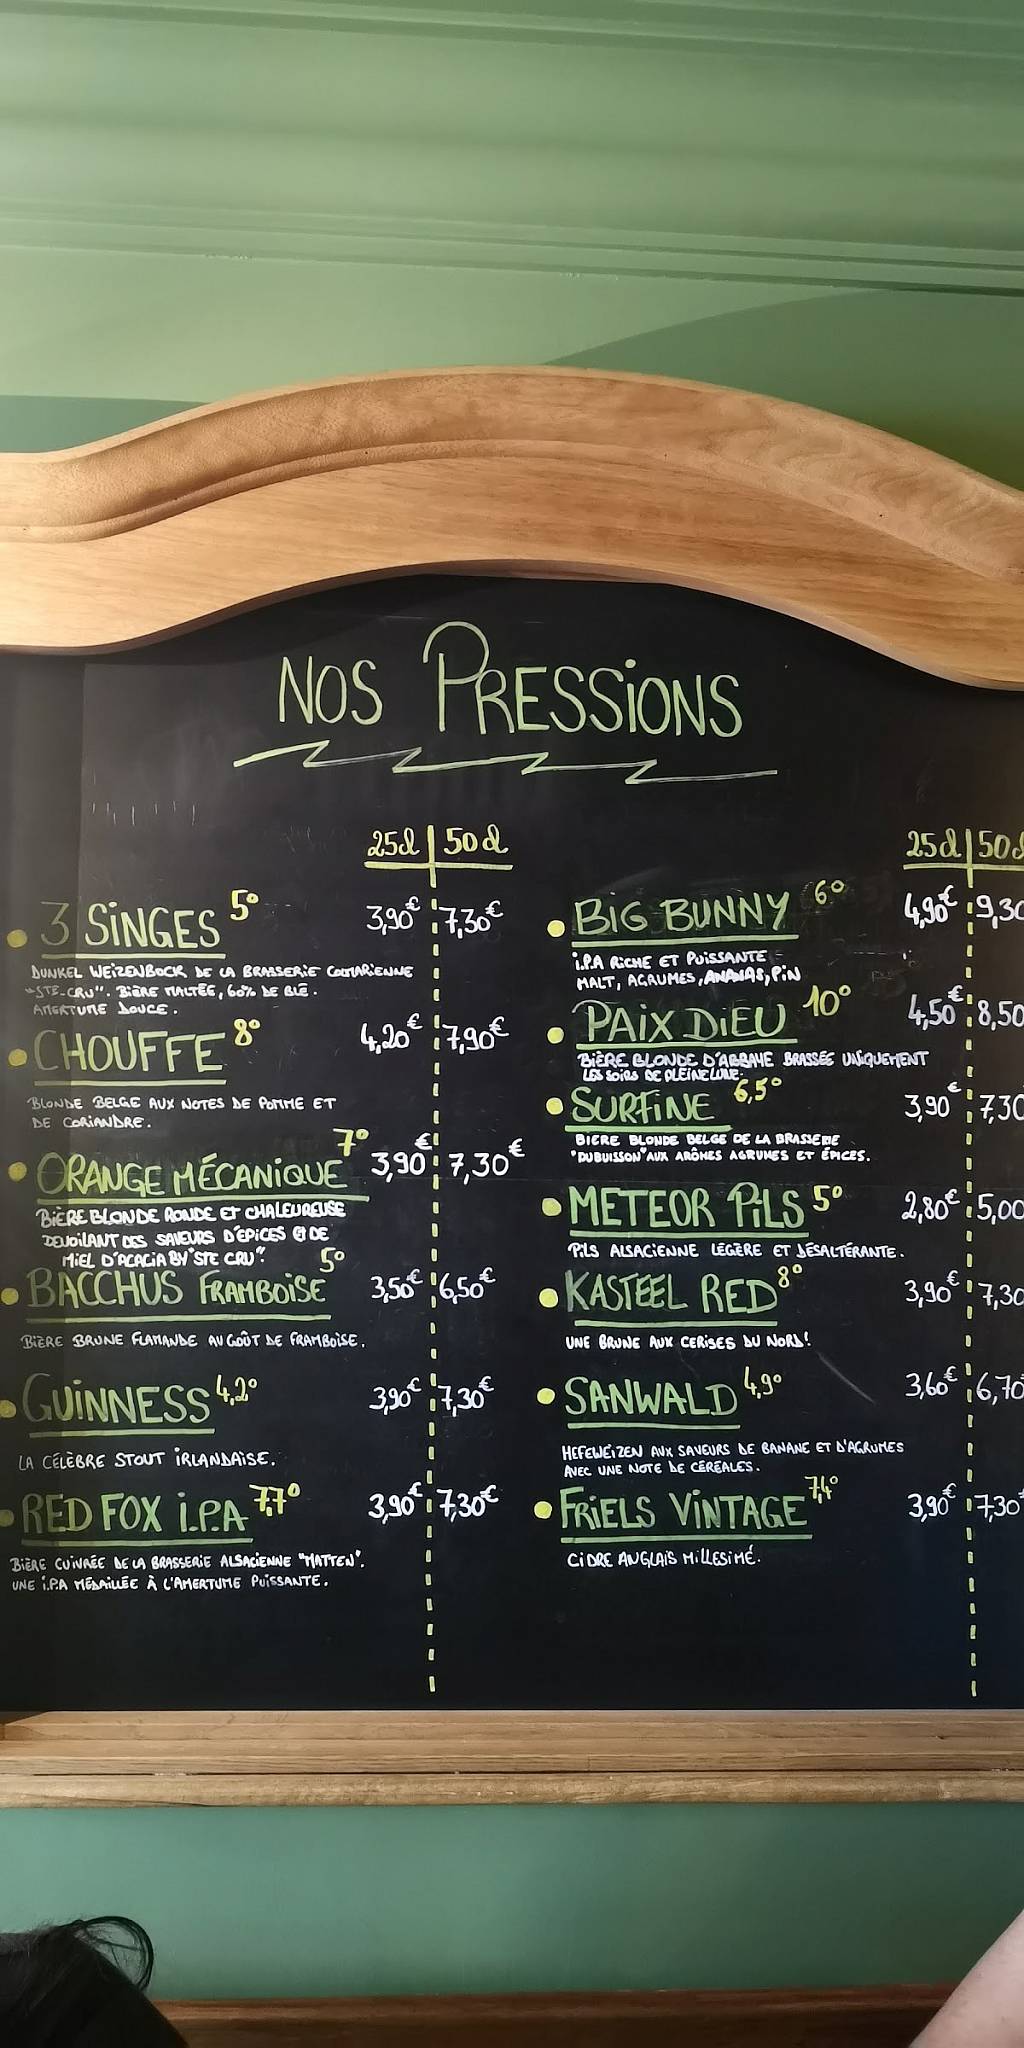 NOS PRESSIONS
25cl 50cl
3 SINGES 5° 3,90€ 7,30€
DUNKEL WEIZENBOCK DE LA BRASSERIE COLMARIENNE
"STE-CRU". BIÈRE MALTÉE, 60% DE BLÉ.
AMERTUME DOUCE.
CHOUFFE 8° 4,20€ 7,90€
BLONDE BELGE AUX NOTES DE POMME ET
DE CORIANDRE.
ORANGE MÉCANIQUE 7° 3,90€ 7,30€
BIÈRE BLONDE RONDE ET CHALEUREUSE
DEVOILANT DES SAVEURS D'ÉPICES ET DE
MIEL D'ACACIA BY "STE CRU".
BACCHUS FRAMBOISE 5° 3,50€ 6,50€
BIÈRE BRUNE FLAMANDE AU GOÛT DE FRAMBOISE.
GUINNESS 4,2° 3,90€ 7,30€
LA CÉLÈBRE STOUT IRLANDAISE.
RED FOX I.P.A 7,7° 3,90€ 7,30€
BIÈRE CUIVRÉE DE LA BRASSERIE ALSACIENNE "MATTEN".
UNE I.P.A MÉDAILLÉE À L'AMERTUME PUISSANTE.
25cl 50c
BIG BUNNY 6° 4,90€ 9,30
I.P.A RICHE ET PUISSANTE
MALT, AGRUMES, ANANAS, PIN
PAIX DIEU 10° 4,50€ 8,50
BIÈRE BLONDE D'ABBAYE BRASSÉE UNIQUEMENT
LES SOIRS DE PLEINE LUNE.
SURFINE 6,5° 3,90€ 7,30
BIERE BLONDE BELGE DE LA BRASSERIE
"DUBUISSON" AUX ARÔMES AGRUMES ET ÉPICES.
METEOR PILS 5° 2,80€ 5,00
PILS ALSACIENNE LÉGÈRE ET DÉSALTÉRANTE.
KASTEEL RED 8° 3,90€ 7,30
UNE BRUNE AUX CERISES DU NORD!
SANWALD 4,9° 3,60€ 6,70
HEFEWEIZEN AUX SAVEURS DE BANANE ET D'AGRUMES
AVEC UNE NOTE DE CÉRÉALES.
FRIELS VINTAGE 7,4° 3,90€ 7,30
CIDRE ANGLAIS MILLESIMÉ.